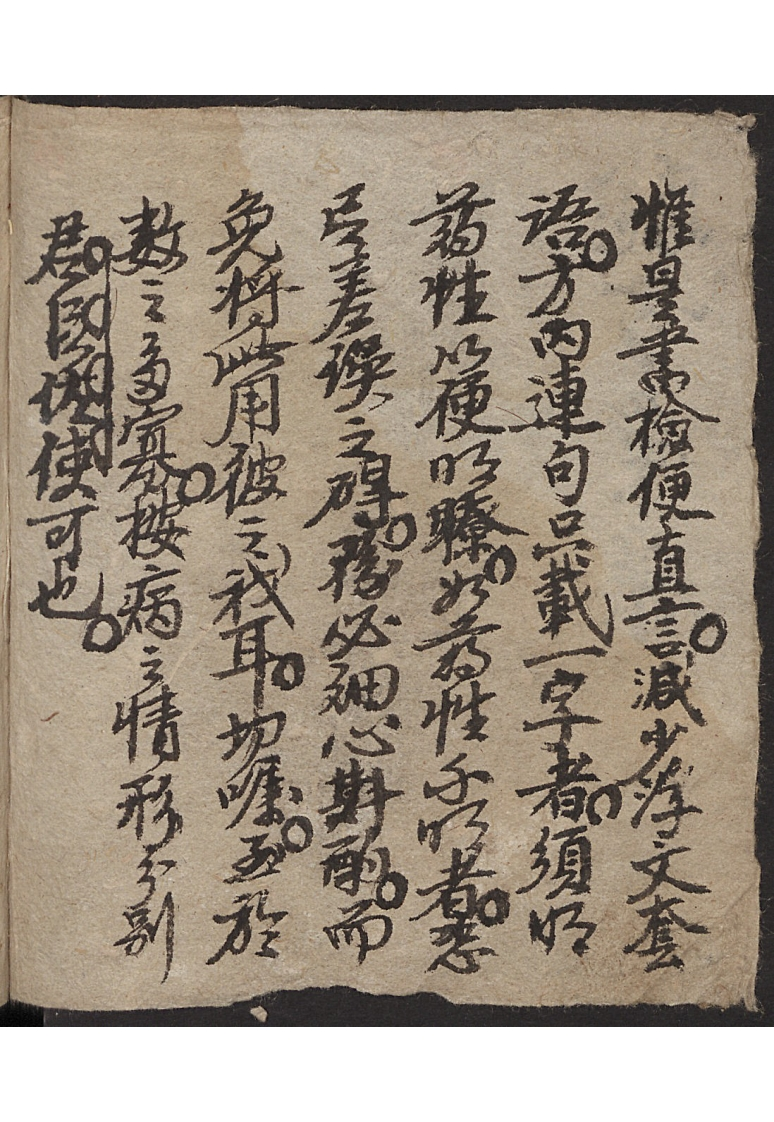 惟是書檢便直言。減少浮文套
語。方內連句只載一字者。須明
药性以便明瞭。如药性不明者。恐
有差悮之碍。務必細心斟酌。而
免將此用彼之我耳。切嘱。至於
数之多寡。按病之情形分别
君。臣。佐。使可也。